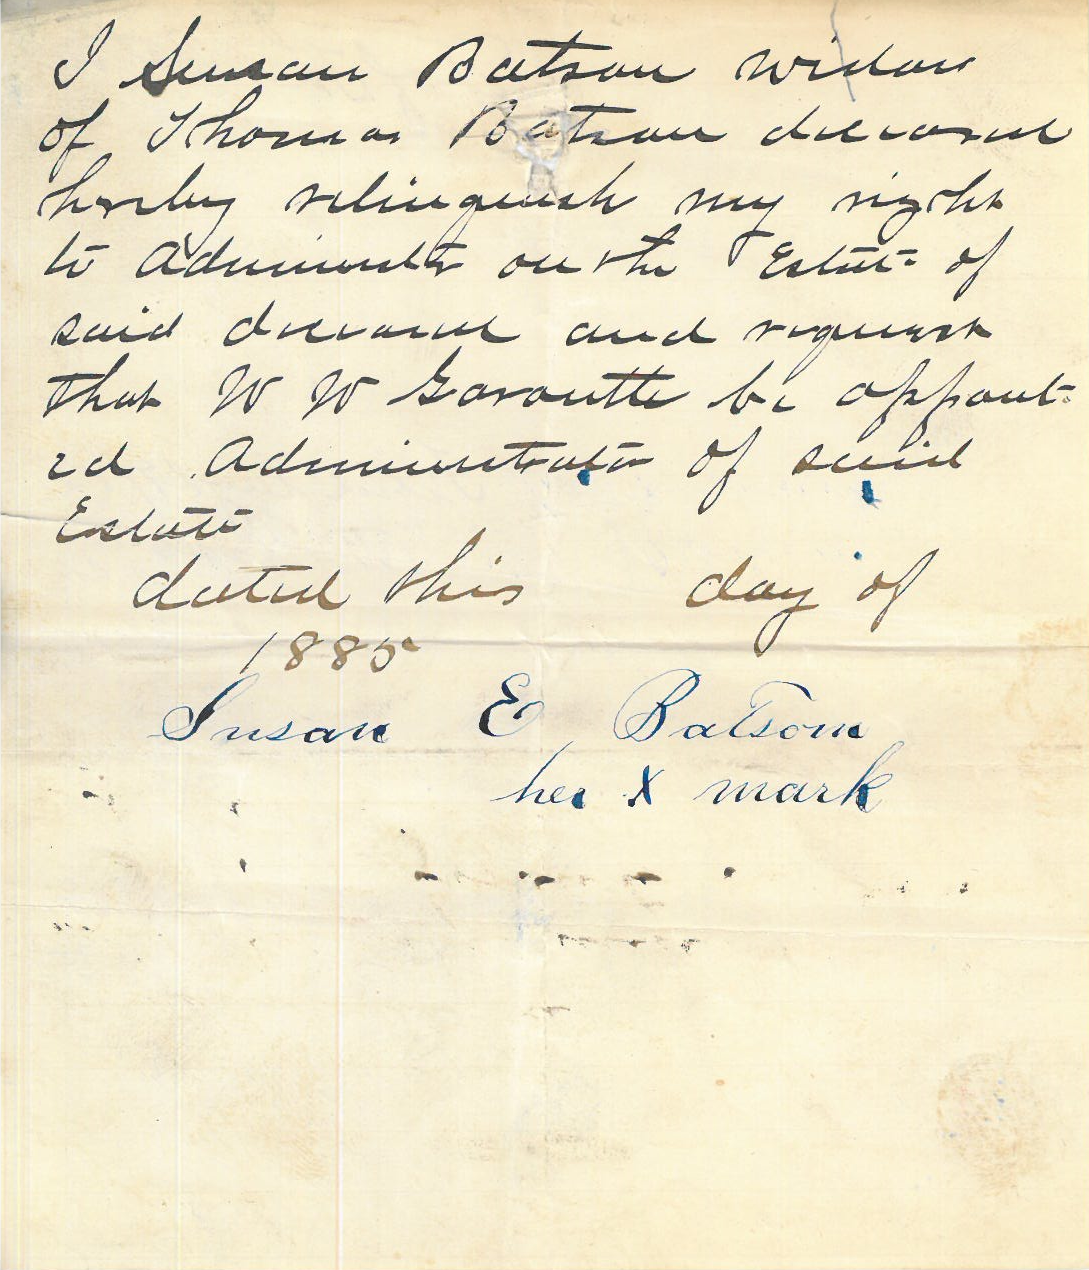 I Susan Batson widow
of Thomas Batson deceased
hereby relinquish my right
to Administer on the Estate of
said deceased and request
that W W Garoutte be appoint-
ed Administrator of said
Estate
dated this day of
1885
Susan E Batson
her X mark